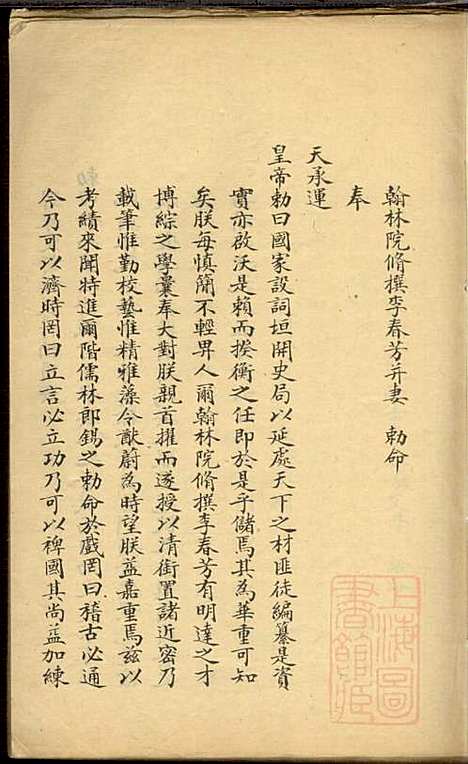 翰林院脩撰李春芳并妻　勅命
奉
天承運
皇帝勅曰國家設詞垣開史局以延處天下之材匪徒編纂是資
實亦啟沃是賴而揆衡之任即於是乎儲焉其為華重可知
矣朕每慎簡不輕畀人爾翰林院脩撰李春芳有明達之才
博綜之學曩奉大對朕親首擢而遂授以清銜置諸近密乃
載筆惟勤校藝惟精雅藻令猷蔚為時望朕益嘉重焉兹以
考績來聞特進爾階儒林郎錫之勅命於戲罔曰稽古必通
今乃可以濟時罔曰立言必立功乃可以裨國其尚益加練
上海圖
書館藏